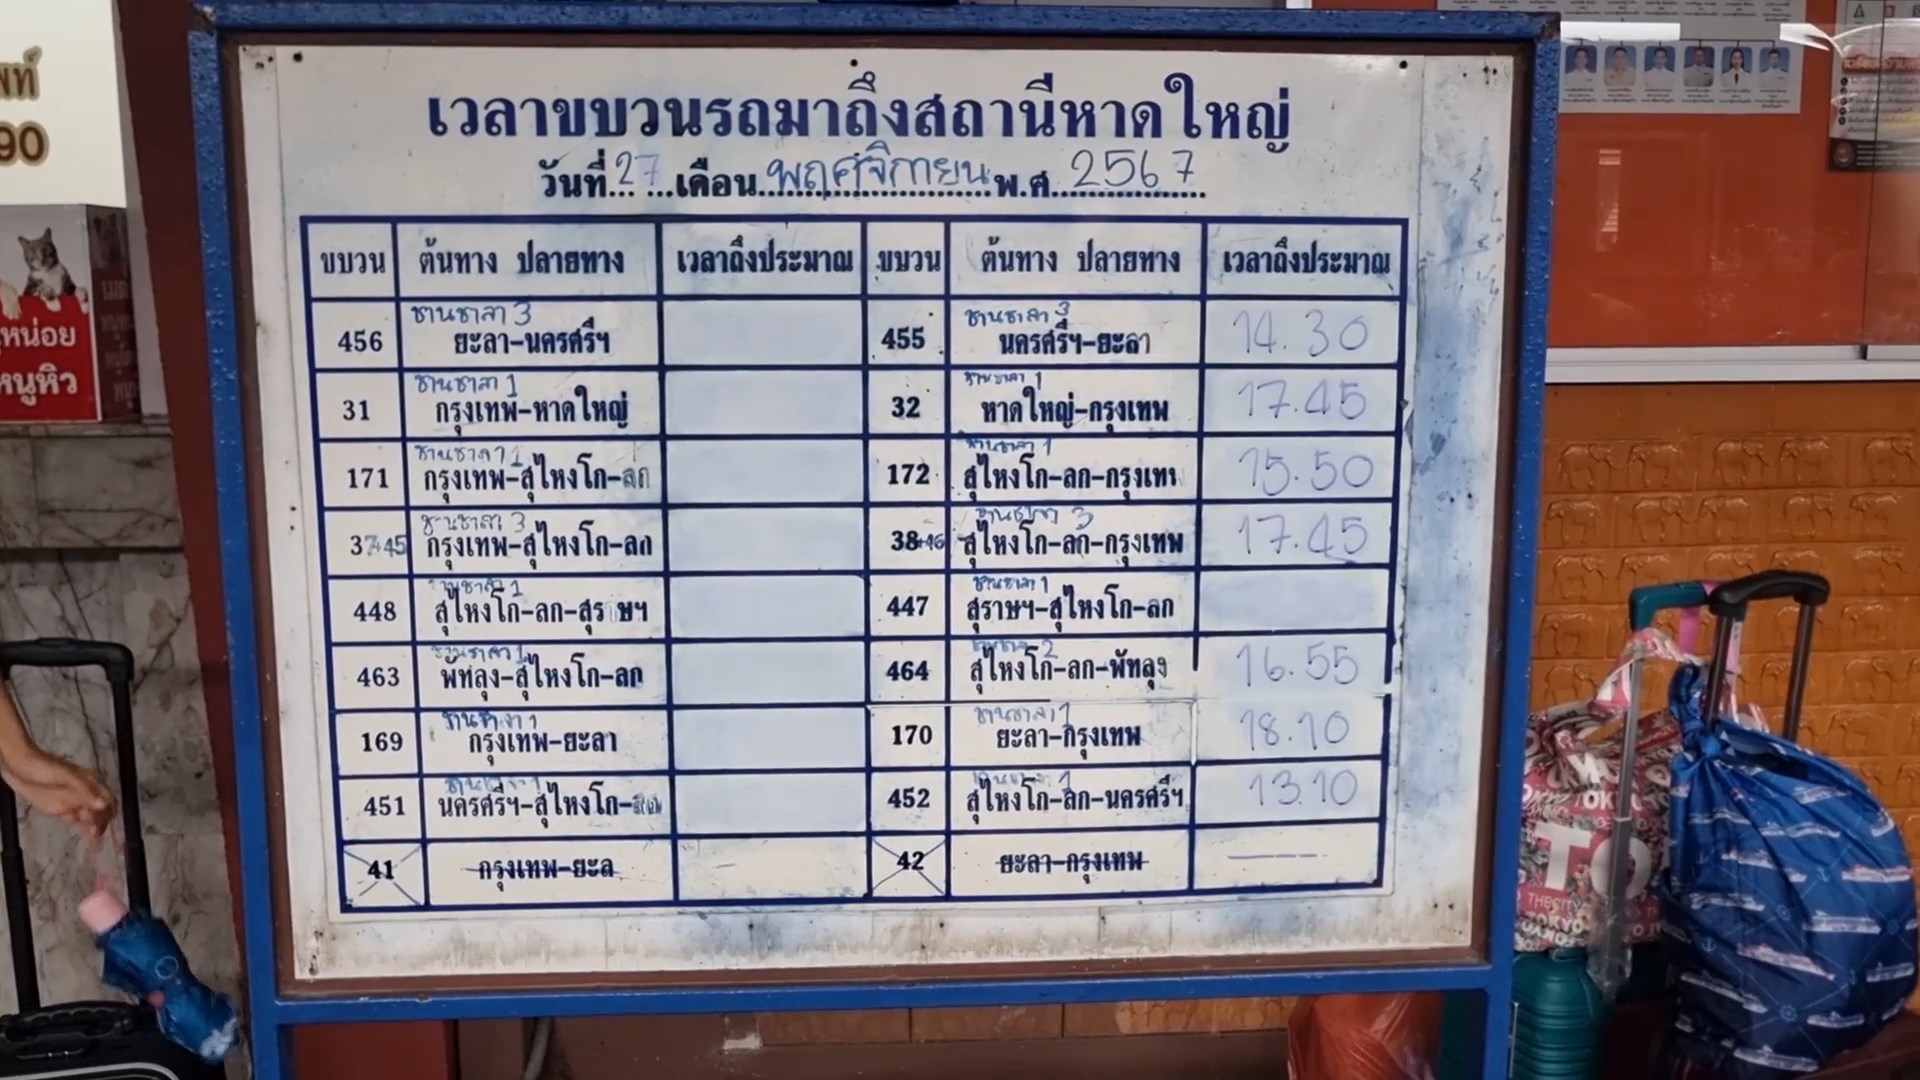 เวลาขบวนรถมาถึงสถานีหาดใหญ่
วันที่...27...เดือน...พฤศจิกายน...พ.ศ....2567...
ขบวน ต้นทาง ปลายทาง เวลาถึงประมาณ ขบวน ต้นทาง ปลายทาง เวลาถึงประมาณ
ชานชาลา 3 ชานชาลา 3
456 ยะลา-นครศรีฯ 455 นครศรีฯ-ยะลา 14.30
ชานชาลา 1 ชานชาลา 1
31 กรุงเทพ-หาดใหญ่ 32 หาดใหญ่-กรุงเทพ 17.45
ชานชาลา 1 ชานชาลา 1
171 กรุงเทพ-สุไหงโก-ลก 172 สุไหงโก-ลก-กรุงเทพ 15.50
ชานชาลา 3 ชานชาลา 3
37+45 กรุงเทพ-สุไหงโก-ลก 38+46 สุไหงโก-ลก-กรุงเทพ 17.45
ชานชาลา 1 ชานชาลา 1
448 สุไหงโก-ลก-สุราษฯ 447 สุราษฯ-สุไหงโก-ลก
ชานชาลา 1 ชานชาลา 2
463 พัทลุง-สุไหงโก-ลก 464 สุไหงโก-ลก-พัทลุง 16.55
ชานชาลา 1 ชานชาลา 1
169 กรุงเทพ-ยะลา 170 ยะลา-กรุงเทพ 18.10
ชานชาลา 1 ชานชาลา 1
451 นครศรีฯ-สุไหงโก-ลก 452 สุไหงโก-ลก-นครศรีฯ 13.10
41 กรุงเทพ-ยะล 42 ยะลา-กรุงเทพ
90
หน่อย
หนูหิว
TO
TOKYO